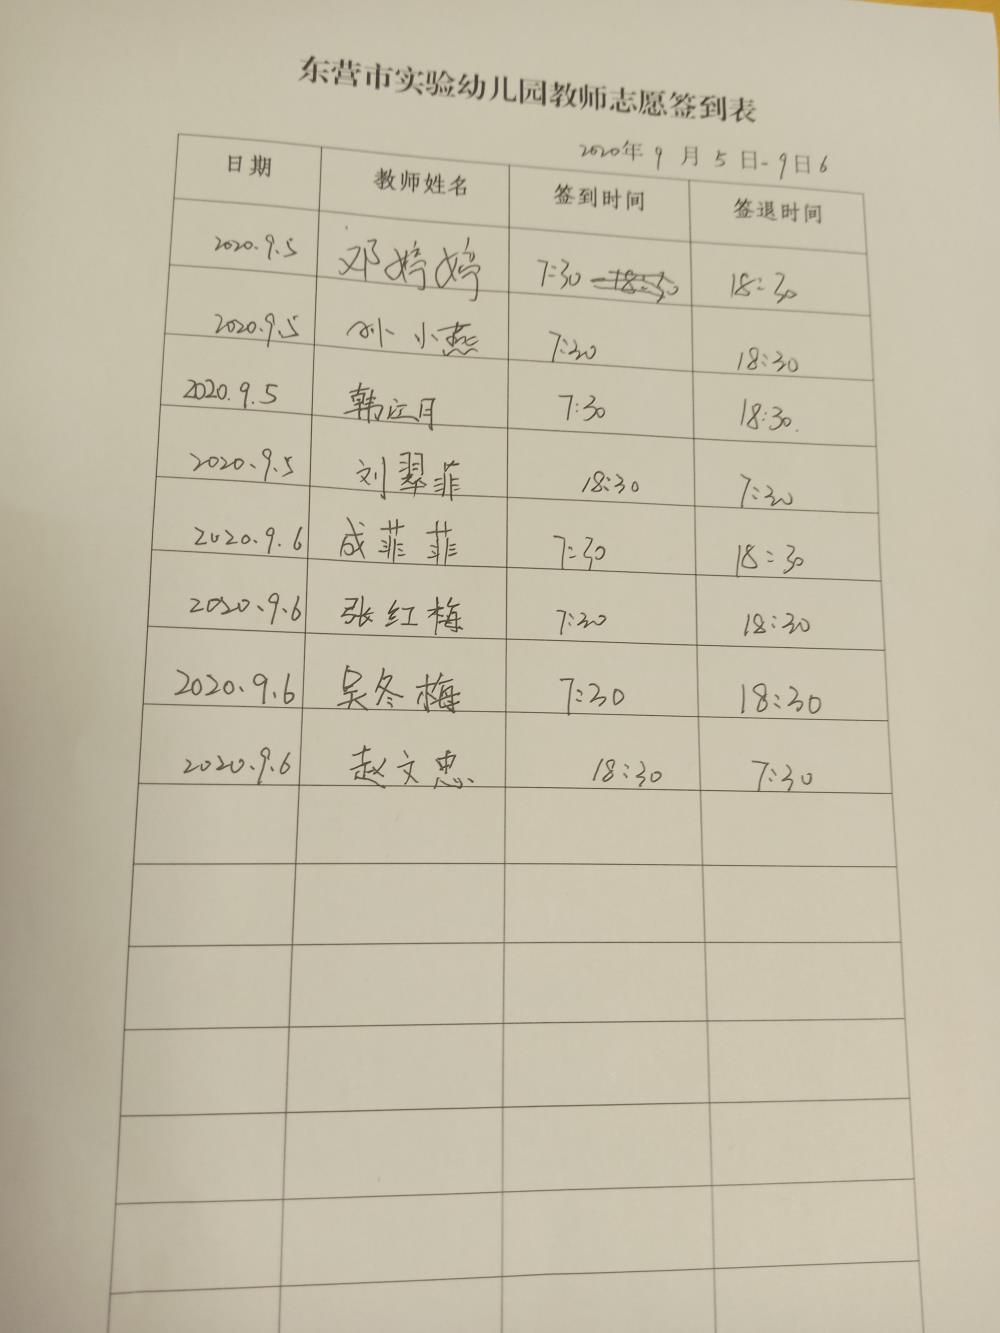 东营市实验幼儿园教师志愿签到表
2020年9月5日-9日6
日期 教师姓名 签到时间 签退时间
2020.9.5 邓婷婷 7:30 18:30
2020.9.5 孙小燕 7:30 18:30
2020.9.5 韩江月 7:30 18:30.
2020.9.5 刘翠菲 18:30 7:30
2020.9.6 成菲菲 7:30 18:30
2020.9.6 张红梅 7:30 18:30
2020.9.6 吴冬梅 7:30 18:30
2020.9.6 赵文忠 18:30 7:30